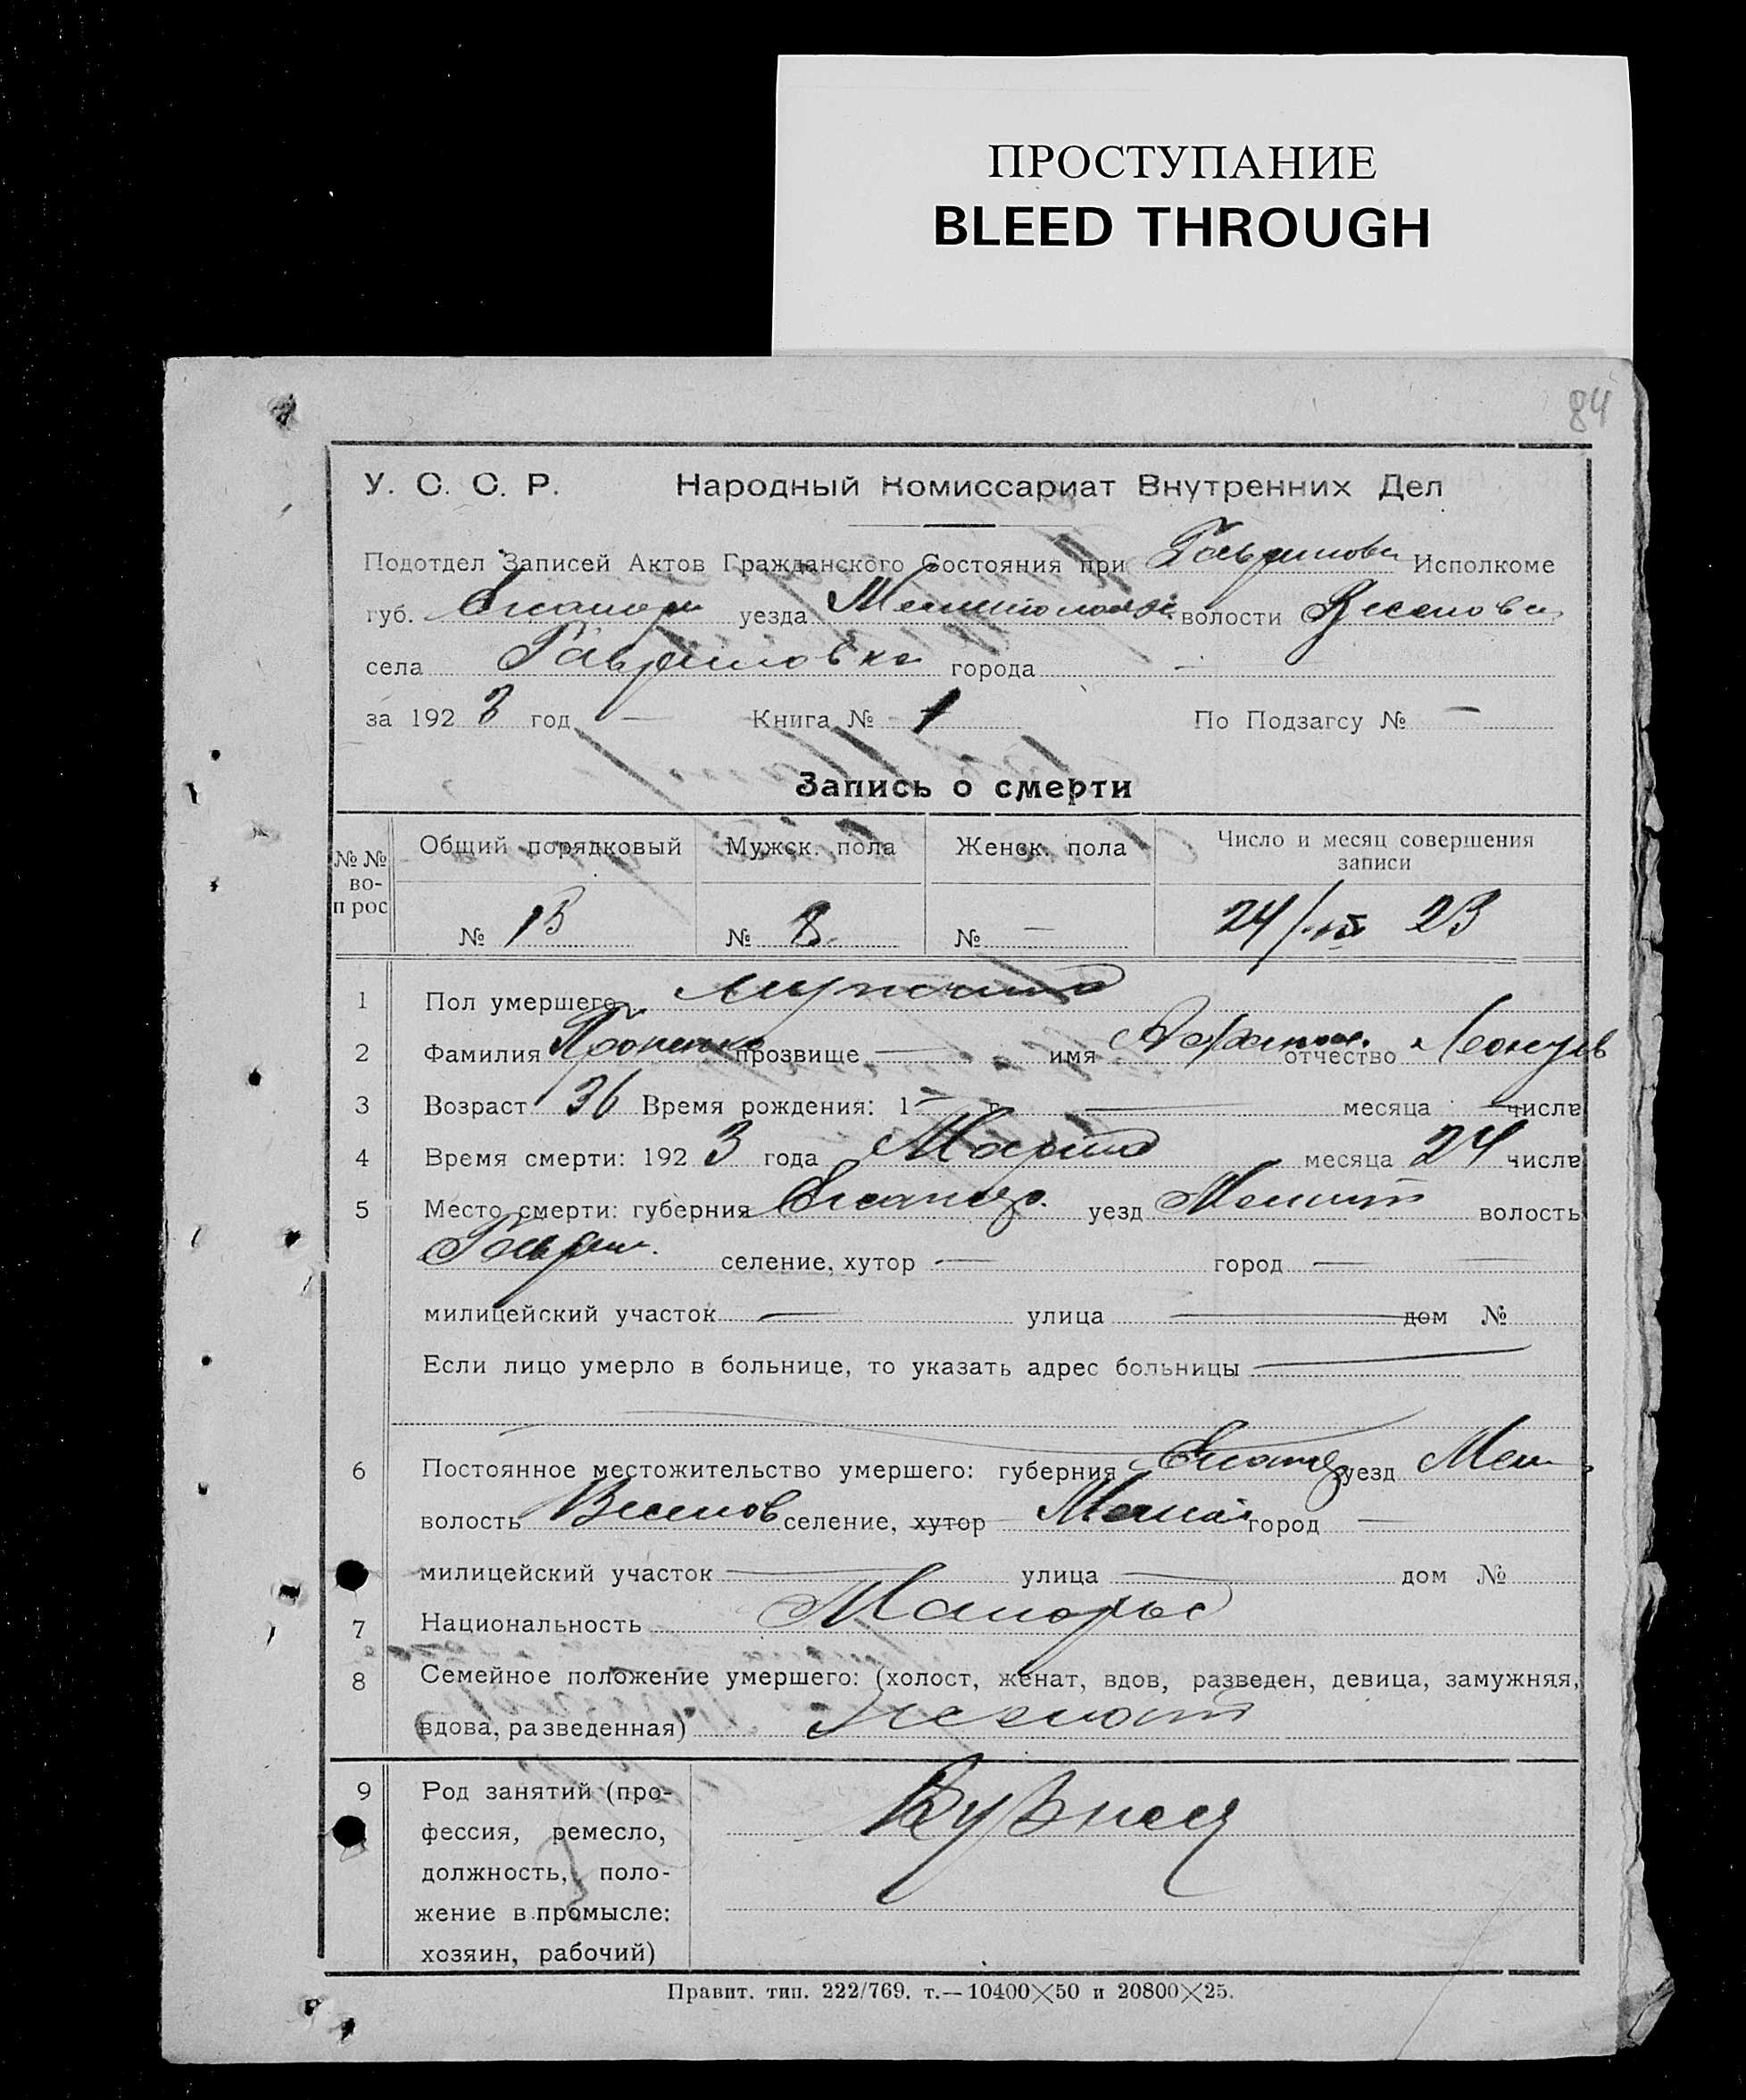 ПРОСТУПАНИЕ
BLEED THROUGH
84
У. С. С. Р. Народный Комиссариат Внутренних Дел
Подотдел Записей Актов Гражданского Состояния при Исполкоме
губ. уезда волости
села Гавриловка города —
за 1923 год — Книга № 1 По Подзагсу № —
Запись о смерти
№№ во-прос Общий порядковый Мужск. пола Женск. пола Число и месяц совершения записи
№ 13 № 8 № — 24/ 23
1 Пол умершего
2 Фамилия прозвище — имя отчество
3 Возраст 36 Время рождения: 1— г. — месяца — числа
4 Время смерти: 1923 года Марта месяца 24 числа
5 Место смерти: губерния Екатер. уезд Мелит волость
Гаврил. селение, хутор — город —
милицейский участок — улица — дом №
Если лицо умерло в больнице, то указать адрес больницы —
6 Постоянное местожительство умершего: губерния Екатер уезд Мел
волость Веселов селение, хутор город —
милицейский участок — улица — дом №
7 Национальность Малорос
8 Семейное положение умершего: (холост, женат, вдов, разведен, девица, замужняя,
вдова, разведенная)
9 Род занятий (про-
фессия, ремесло,
должность, поло-
жение в промысле:
хозяин, рабочий)
Правит. тип. 222/769. т.—10400×50 и 20800×25.